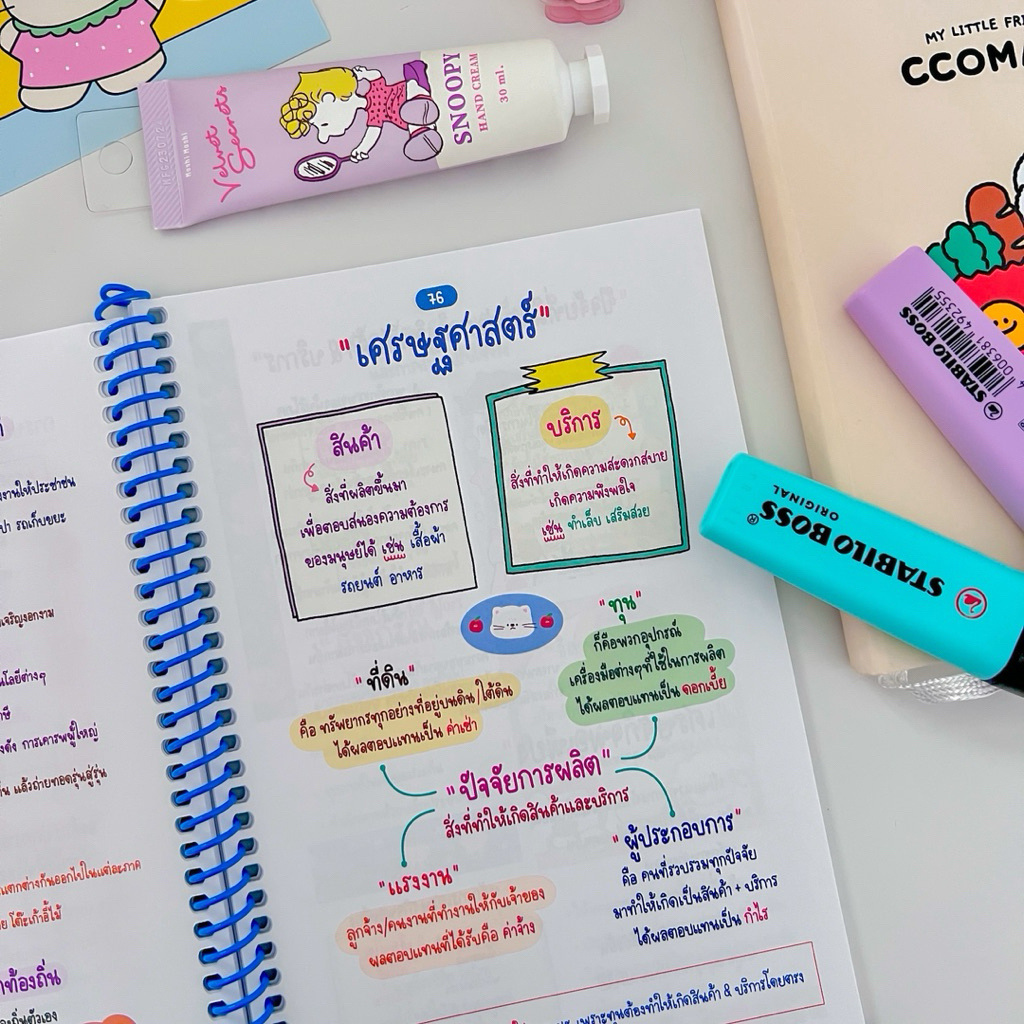 MY LITTLE
CCOMA
Velvet
Secrets
SNOOPY
HAND CREAM
30 ml.
Moshi Moshi
STABILO BOSS
006381 492355
STABILO BOSS
ORIGINAL
76
"เศรษฐศาสตร์"
สินค้า
สิ่งที่ผลิตขึ้นมา
เพื่อตอบสนองความต้องการ
ของมนุษย์ได้ เช่น เสื้อผ้า
รถยนต์ อาหาร
บริการ
สิ่งที่ทำให้เกิดความสะดวกสบาย
เกิดความพึงพอใจ
เช่น ทำเล็บ เสริมสวย
"ที่ดิน"
คือ ทรัพยากรทุกอย่างที่อยู่บนดิน/ใต้ดิน
ได้ผลตอบแทนเป็น ค่าเช่า
"ทุน"
ก็คือพวกอุปกรณ์
เครื่องมือต่างๆที่ใช้ในการผลิต
ได้ผลตอบแทนเป็น ดอกเบี้ย
"ปัจจัยการผลิต"
สิ่งที่ทำให้เกิดสินค้าและบริการ
"แรงงาน"
ลูกจ้าง/คนงานที่ทำงานให้กับเจ้าของ
ผลตอบแทนที่ได้รับคือ ค่าจ้าง
"ผู้ประกอบการ"
คือ คนที่รวบรวมทุกปัจจัย
มาทำให้เกิดเป็นสินค้า + บริการ
ได้ผลตอบแทนเป็น กำไร
เพราะทุนต้องทำให้เกิดสินค้า & บริการโดยตรง
งานให้ประชาชน
รถเก็บขยะ
เจริญงอกงาม
โลยีต่างๆ
การเคารพผู้ใหญ่
แล้วถ่ายทอดรุ่นสู่รุ่น
แตกต่างกันออกไปในแต่ละภาค
โต๊ะเก้าอี้ไม้
ท้องถิ่น
ถิ่นตัวเอง